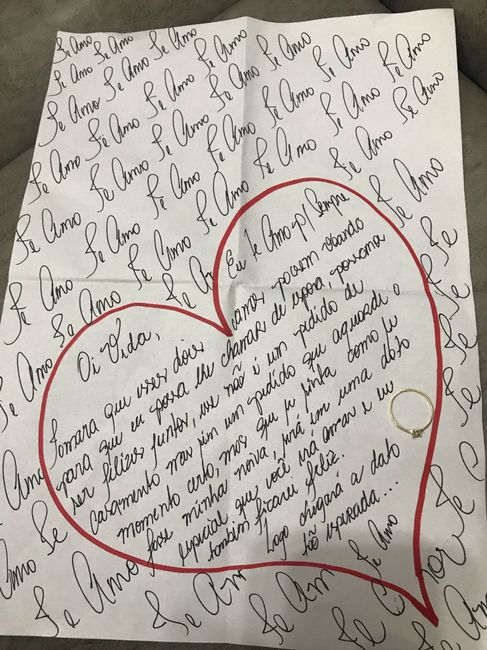 Te Amo Te Amo Te Amo Te Amo Te Amo Te Amo
Te Amo Te Amo Te Amo Te Amo Te Amo Te Amo
Te Amo Te Amo Te Amo Te Amo Te Amo Te Amo
Te Amo Te Amo Te Amo Te Amo Te Amo
Te Amo Te Amo Te Amo Te Amo Te Amo
Te Amo Te Amo Te Amo
Te Amo Te Amo
Eu te Amo p/ Sempre
Oi Vida,
Tomara que esses dois anos passem voando
para que eu possa lhe chamar de esposa, possamos
ser felizes juntos, esse não é um pedido de
casamento mas sim um pedido que aguarde o
momento certo, mas que se sinta como se
fosse minha noiva, irá em uma data
especial que você irá amar e eu
também ficarei feliz.
Logo chegará a data
tão esperada...
Te Amo Te Am Te Am Te Amo